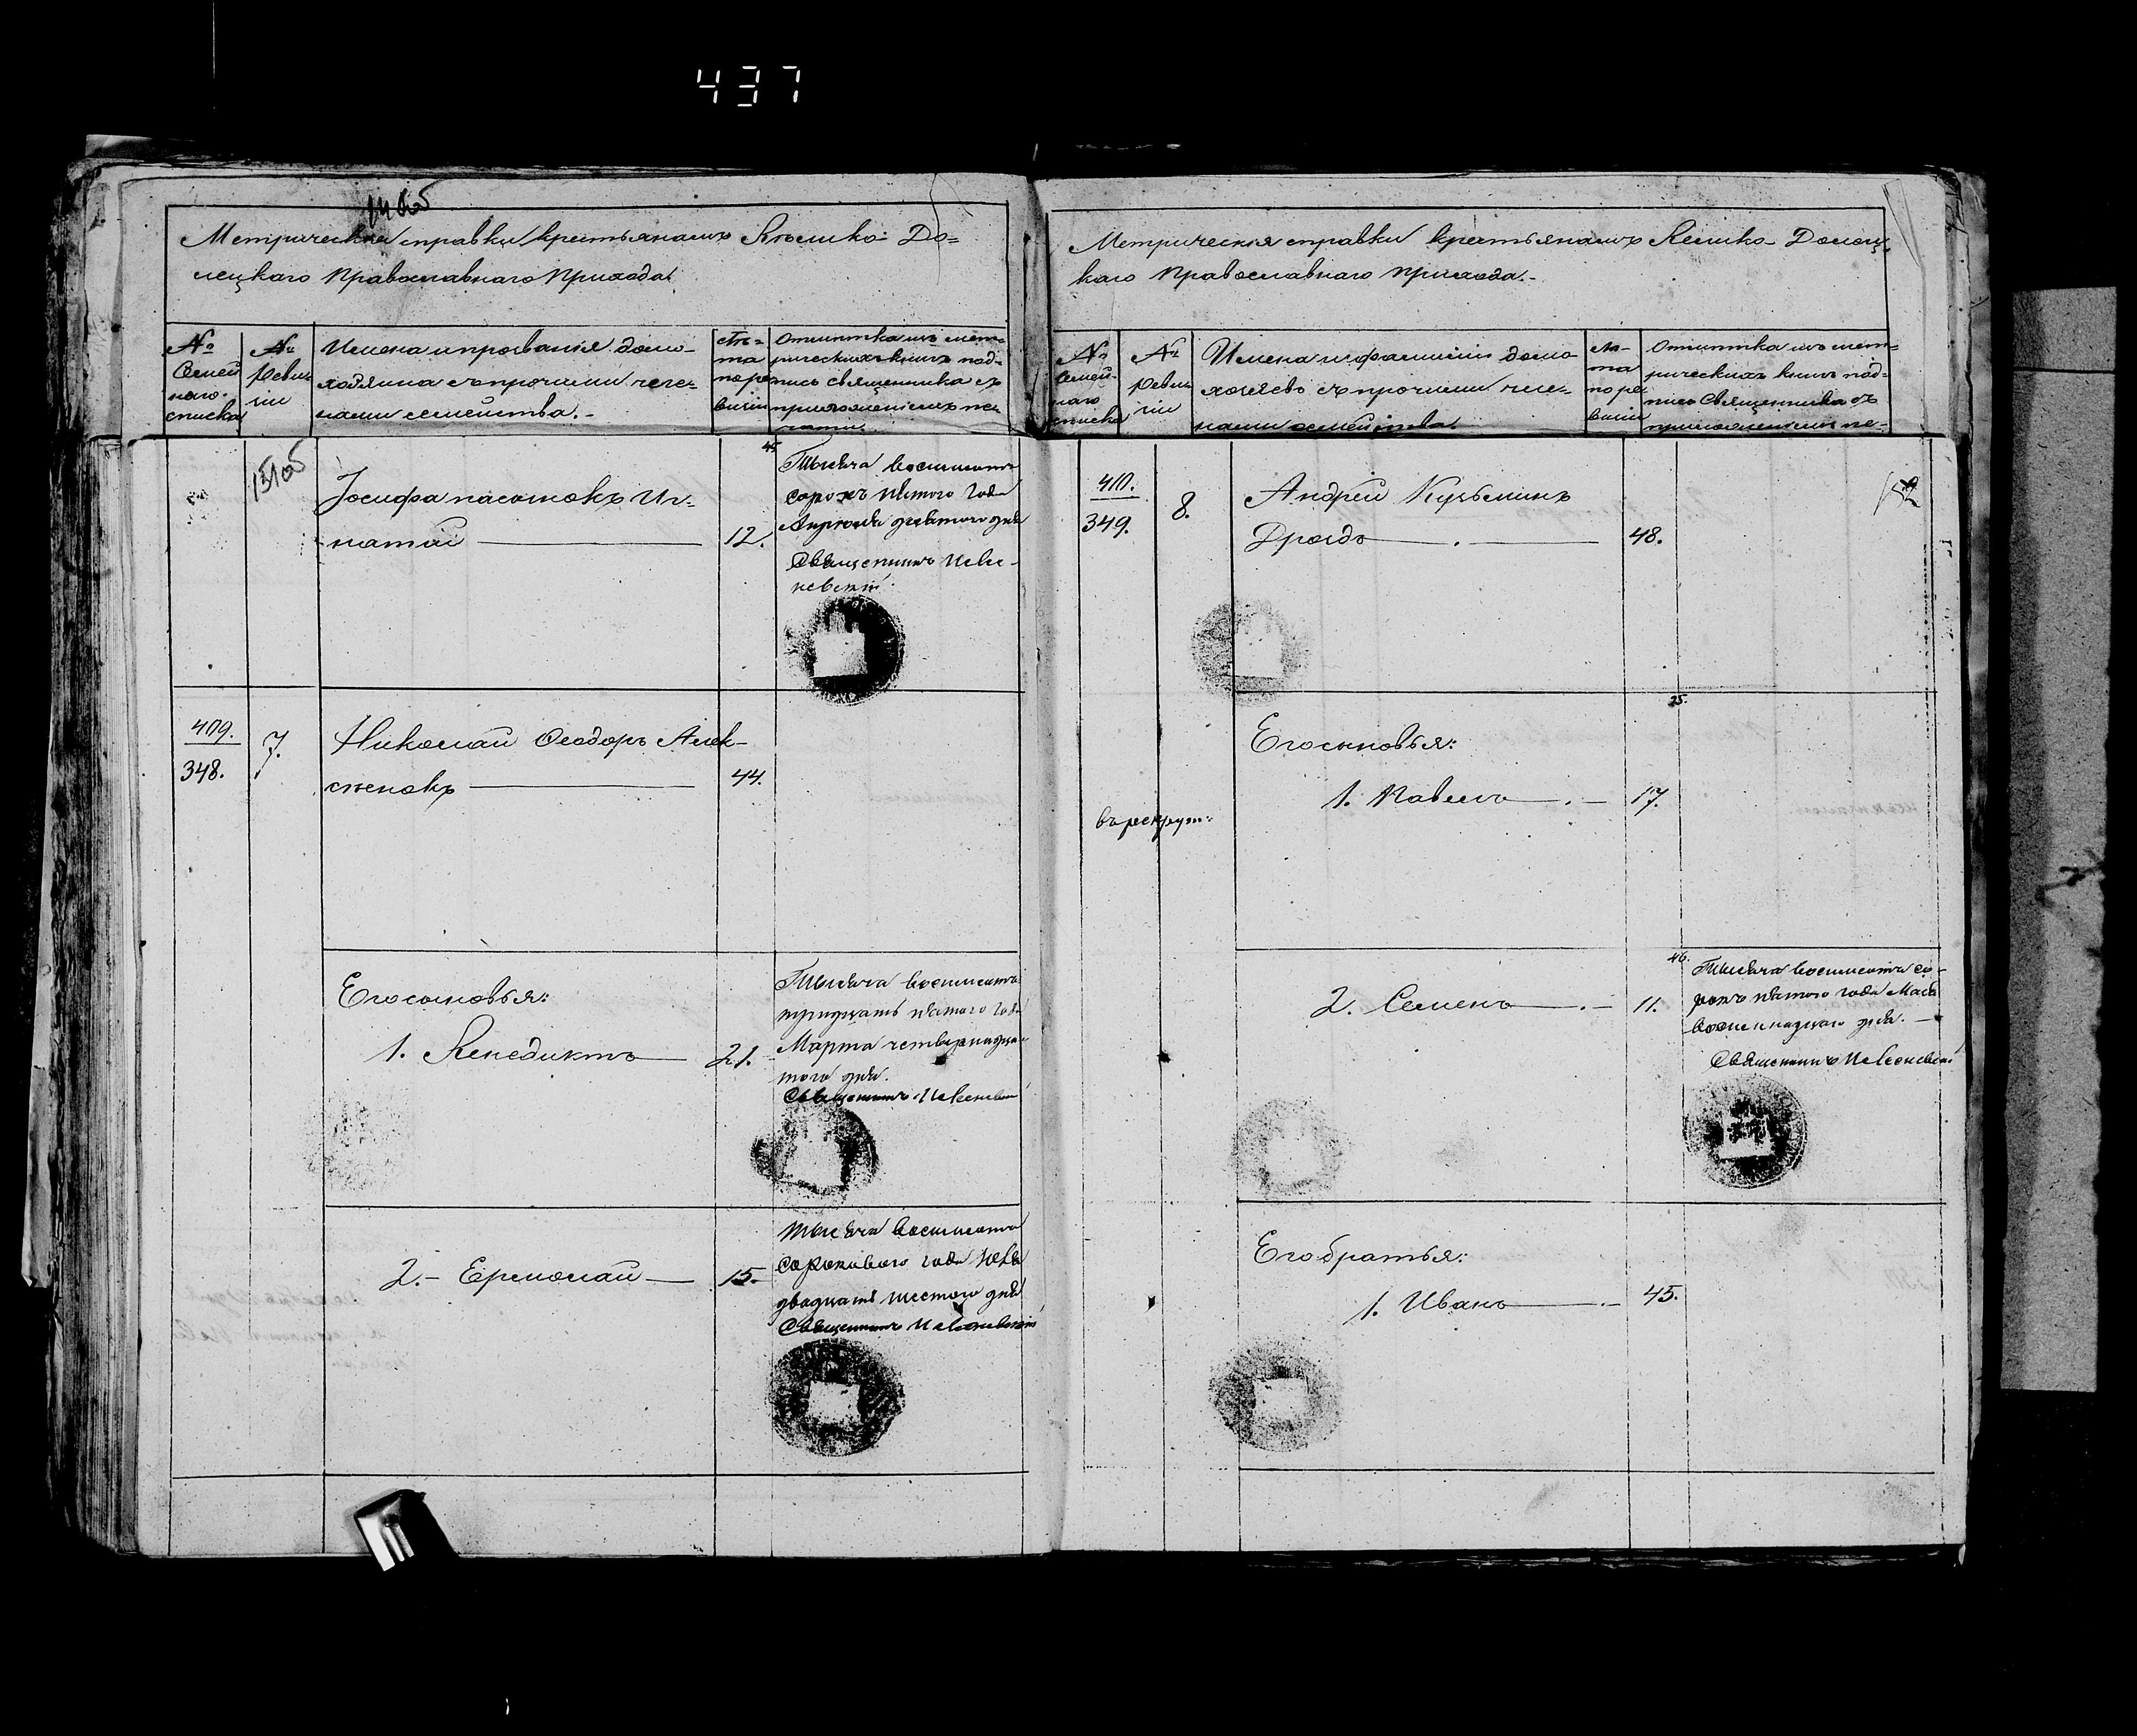 437
Метрическія справки крестьянамъ Велико-До=
лецкаго Православнаго Прихода.
№ Семей наго списка
№ Реви зіи
Имена и прозванія домо-
хозяина съ прочими чле-
нами семейства.-
Лѣ= та по ре визіи
Отмѣтка изъ мет=
рическихъ книгъ под=
пись священника съ
приложеніемъ пе-
чати.
151об
Іосифа пасынокъ Иг-
натій 12.
45
Тысяча восемьсотъ
сорокъ пятого года
Апрѣля девятого дня
Священникъ
409.
348.
7.
Николай Ѳеодоръ Алек-
сѣенокъ 44.
Его сыновья:
1. Венедиктъ 21.
Тысяча восемьсотъ
тридцать пятого года
Марта четвернадца-
того дня.
Священникъ
2.- Ермолай 15.
Тысяча восемьсотъ
сорокового года Іюля
двадцать шестого дня
Священникъ
Метрическія справки крестьянамъ Велико-Долец-
каго Православнаго Прихода.-
№ Семей- наго списка
№ Реви зіи
Имена и фамиліи домо
хозяевъ съ прочими чле-
нами семейства.
Лѣ- та по ре визіи
Отмѣтка изъ мет=
рическихъ книгъ под=
пись Священника съ
приложеніемъ пе-
152
410.
349.
8.
Андрей Кузьминъ
Дроздъ 48.
25.
Его сыновья:
1. Павелъ 17.
въ рекрут:
2. Семенъ 11.
46.
Тысяча восемьсотъ со-
рокъ пятого года Мая
восемнадцаго дня.
Священникъ
Его братья:
1. Иванъ 45.